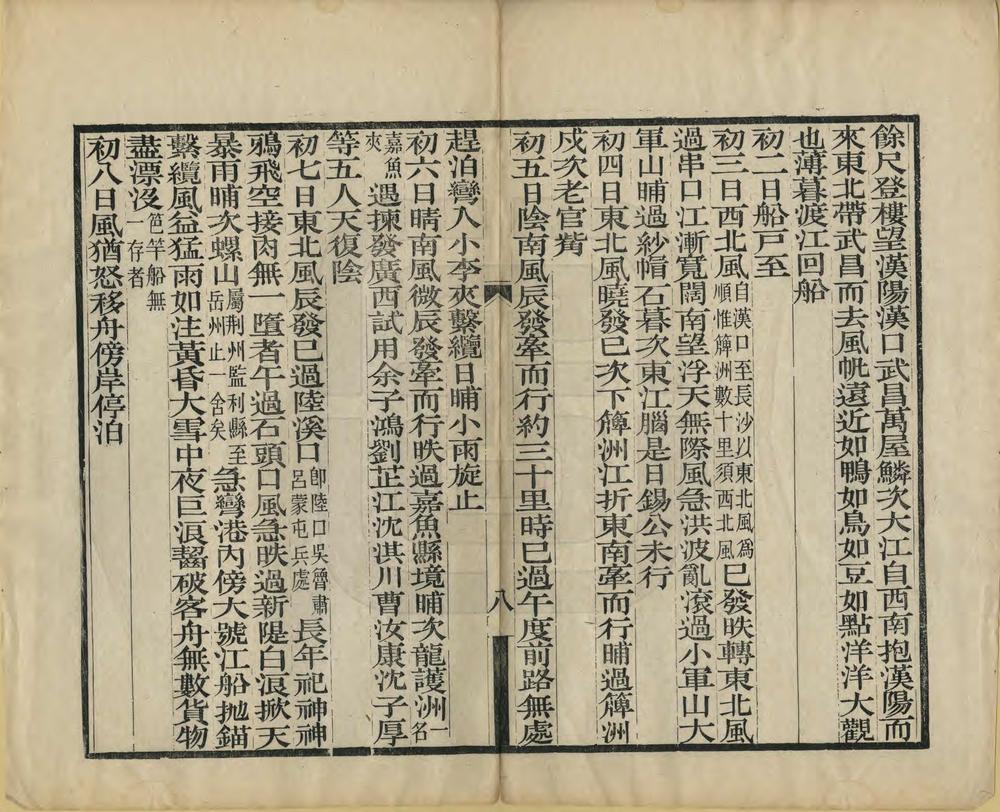 餘尺登樓望漢陽漢口武昌萬屋鱗次大江自西南抱漢陽而
來東北帶武昌而去風帆遠近如鴨如鳥如豆如點洋洋大觀
也薄暮渡江回船
初二日船戶至
初三日西北風自漢口至長沙以東北風為順惟簰洲數十里須西北風巳發昳轉東北風
過串口江漸寬闊南望浮天無際風急洪波亂滾過小軍山大
軍山晡過紗帽石暮次東江腦是日錫公未行
初四日東北風曉發巳次下簰洲江折東南牽而行晡過簰洲
戍次老官觜
初五日陰南風辰發牽而行約三十里時巳過午度前路無處
八
趕泊彎入小李夾繫纜日晡小雨旋止
初六日晴南風微辰發牽而行昳過嘉魚縣境晡次龍護洲一名
嘉魚夾遇揀發廣西試用余子鴻劉芷江沈淇川曹汝康沈子厚
等五人天復陰
初七日東北風辰發巳過陸溪口即陸口吳魯肅呂蒙屯兵處長年祀神神
鴉飛空接肉無一墮者午過石頭口風急昳過新隄白浪掀天
暴雨晡次螺山屬荆州監利縣至岳州止一舍矣急彎港內傍大號江船拋錨
繫纜風益猛雨如注黃昏大雪中夜巨浪齧破客舟無數貨物
盡漂沒笆竿船無一存者
初八日風猶怒移舟傍岸停泊